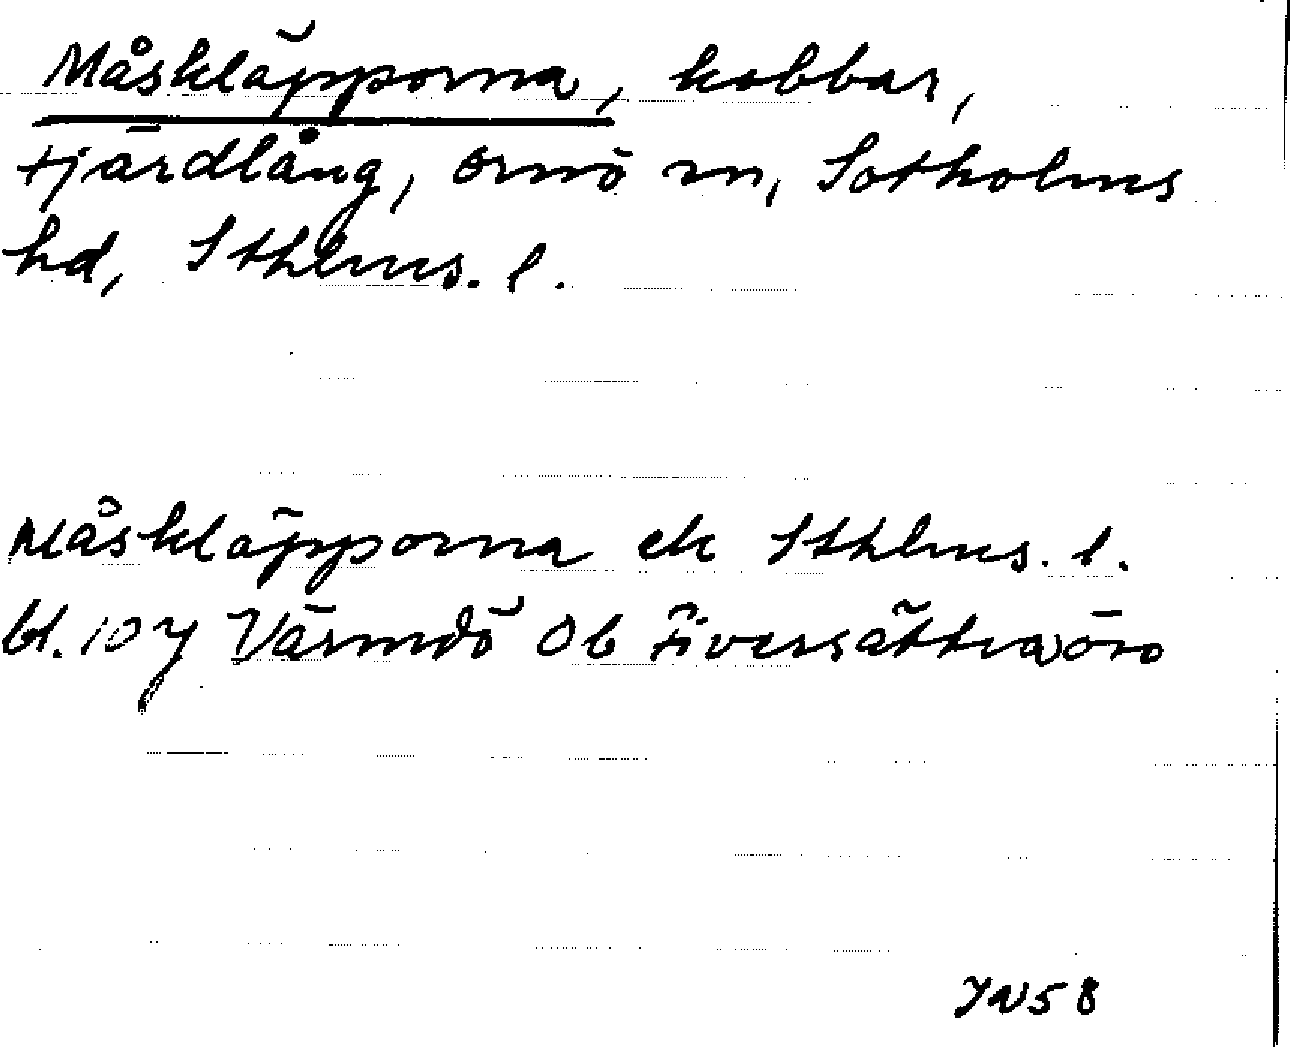 Måskläpporna, kobbar,
Fjärdlång, Ornö sn, Sotholms
hd, Sthlms. l.
Måskläpporna ek Sthlms. l.
bl. 107 Värmdö Ob Fiversätraö
YN58